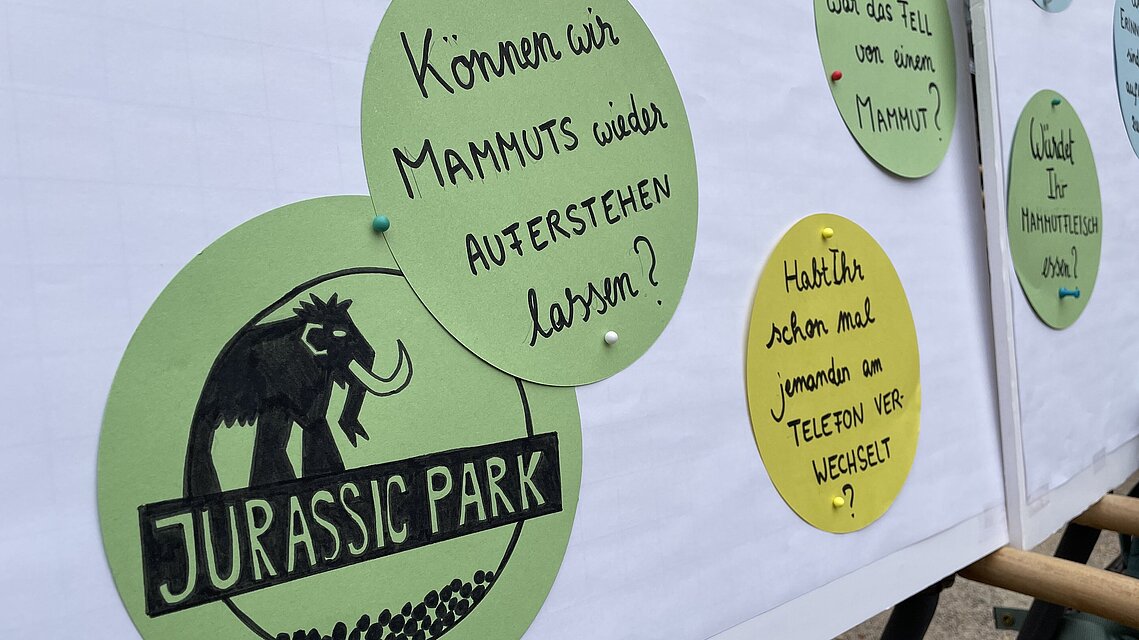 Können wir
MAMMUTS wieder
AUFERSTEHEN
lassen?
JURASSIC PARK
War das FELL
von einem
MAMMUT?
Habt Ihr
schon mal
jemanden am
TELEFON VER-
WECHSELT
?
Würdet
Ihr
MAMMUTFLEISCH
essen?